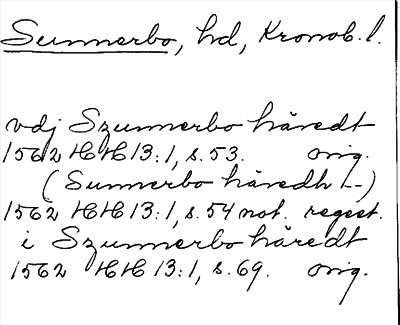 Sunnerbo, hd, Kronob. l.
vdj Szunnerbo häredt
1562 HH 13:1, s. 53. orig.
(Sunnerbo häredh --)
1562 HH 13:1, s. 54 not. regest.
i Szunnerbo häredt
1562 HH 13:1, s. 69. orig.